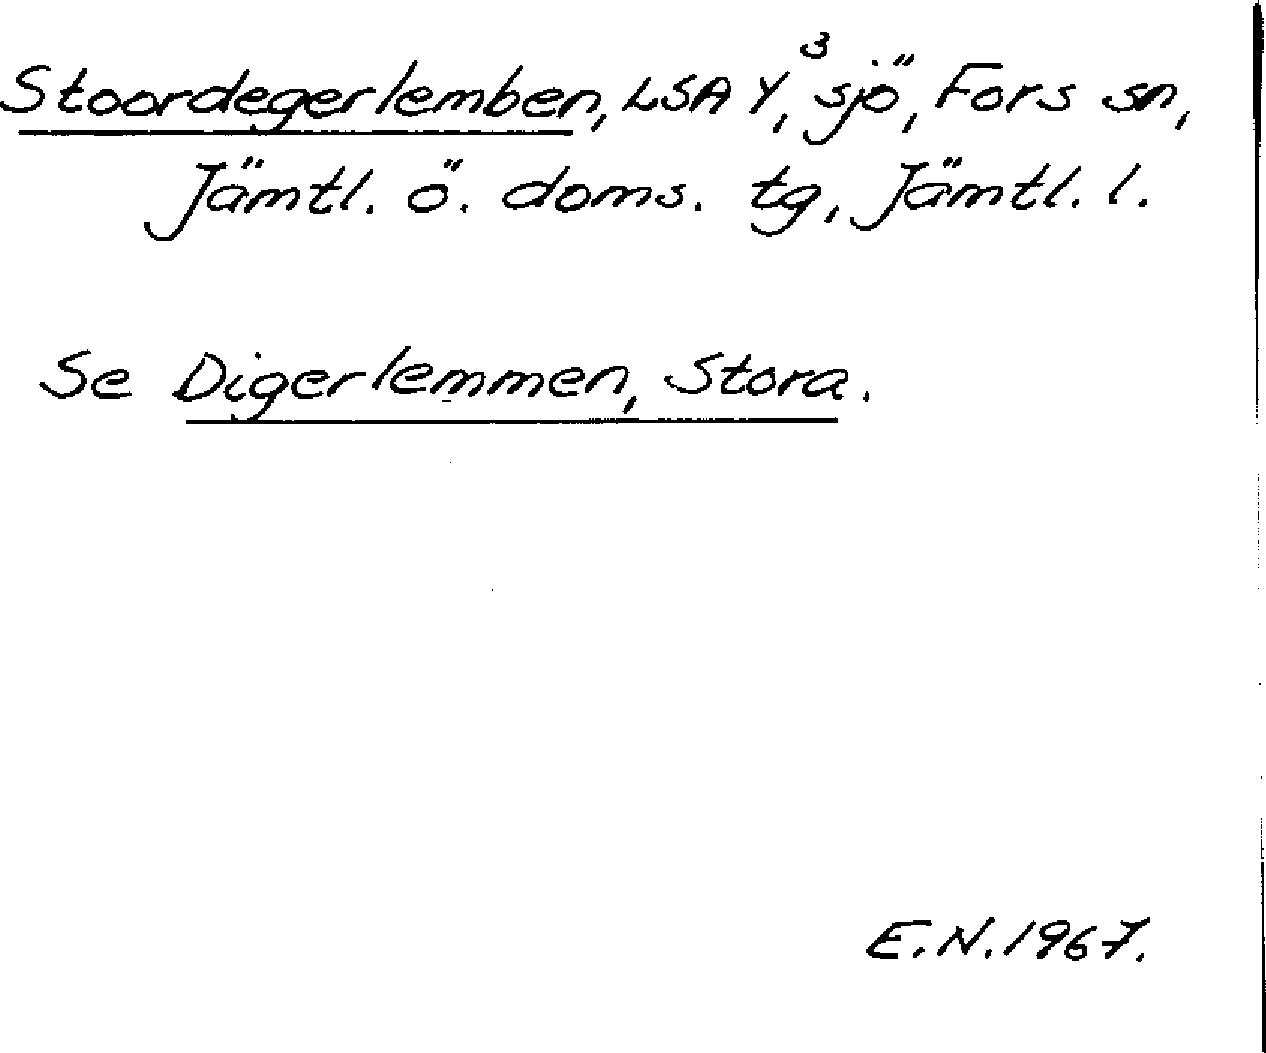 Stoordegerlemben, LSA Y³, sjö, Fors sn,
Jämtl. ö. doms. tg, Jämtl. l.
Se Digerlemmen, Stora.
E.N. 1967.